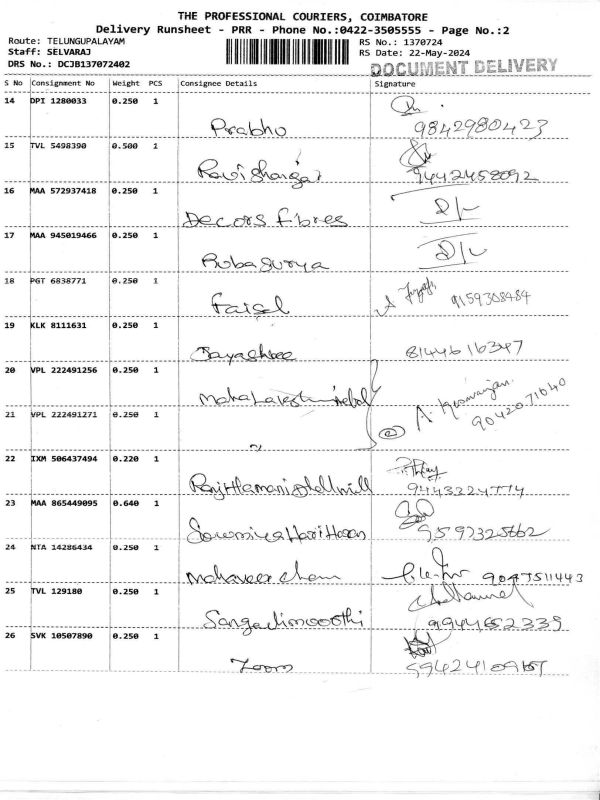 THE PROFESSIONAL COURIERS, COIMBATORE
Delivery Runsheet - PRR - Phone No.:0422-3505555 - Page No.:2
Route: TELUNGUPALAYAM RS No.: 1370724
Staff: SELVARAJ RS Date: 22-May-2024
DRS No.: DCJB137072402 DOCUMENT DELIVERY
S No Consignment No Weight PCS Consignee Details Signature
14 DPI 1280033 0.250 1
Prabhu 9842980423
15 TVL 5498390 0.500 1
Ravishangar 9442458092
16 MAA 572937418 0.250 1
Decors fibres
17 MAA 945019466 0.250 1
Rubasurya
18 PGT 6838771 0.250 1
Faisel 9159308484
19 KLK 8111631 0.250 1
Jayashree 8144616347
20 VPL 222491256 0.250 1
21 VPL 222491271 0.250 1
9042071640
22 IXM 506437494 0.220 1
23 MAA 865449095 0.640 1
Sowmiya Hari Haran
24 NTA 14286434 0.250 1
25 TVL 129180 0.250 1
9944652339
26 SVK 10507890 0.250 1
Zoom